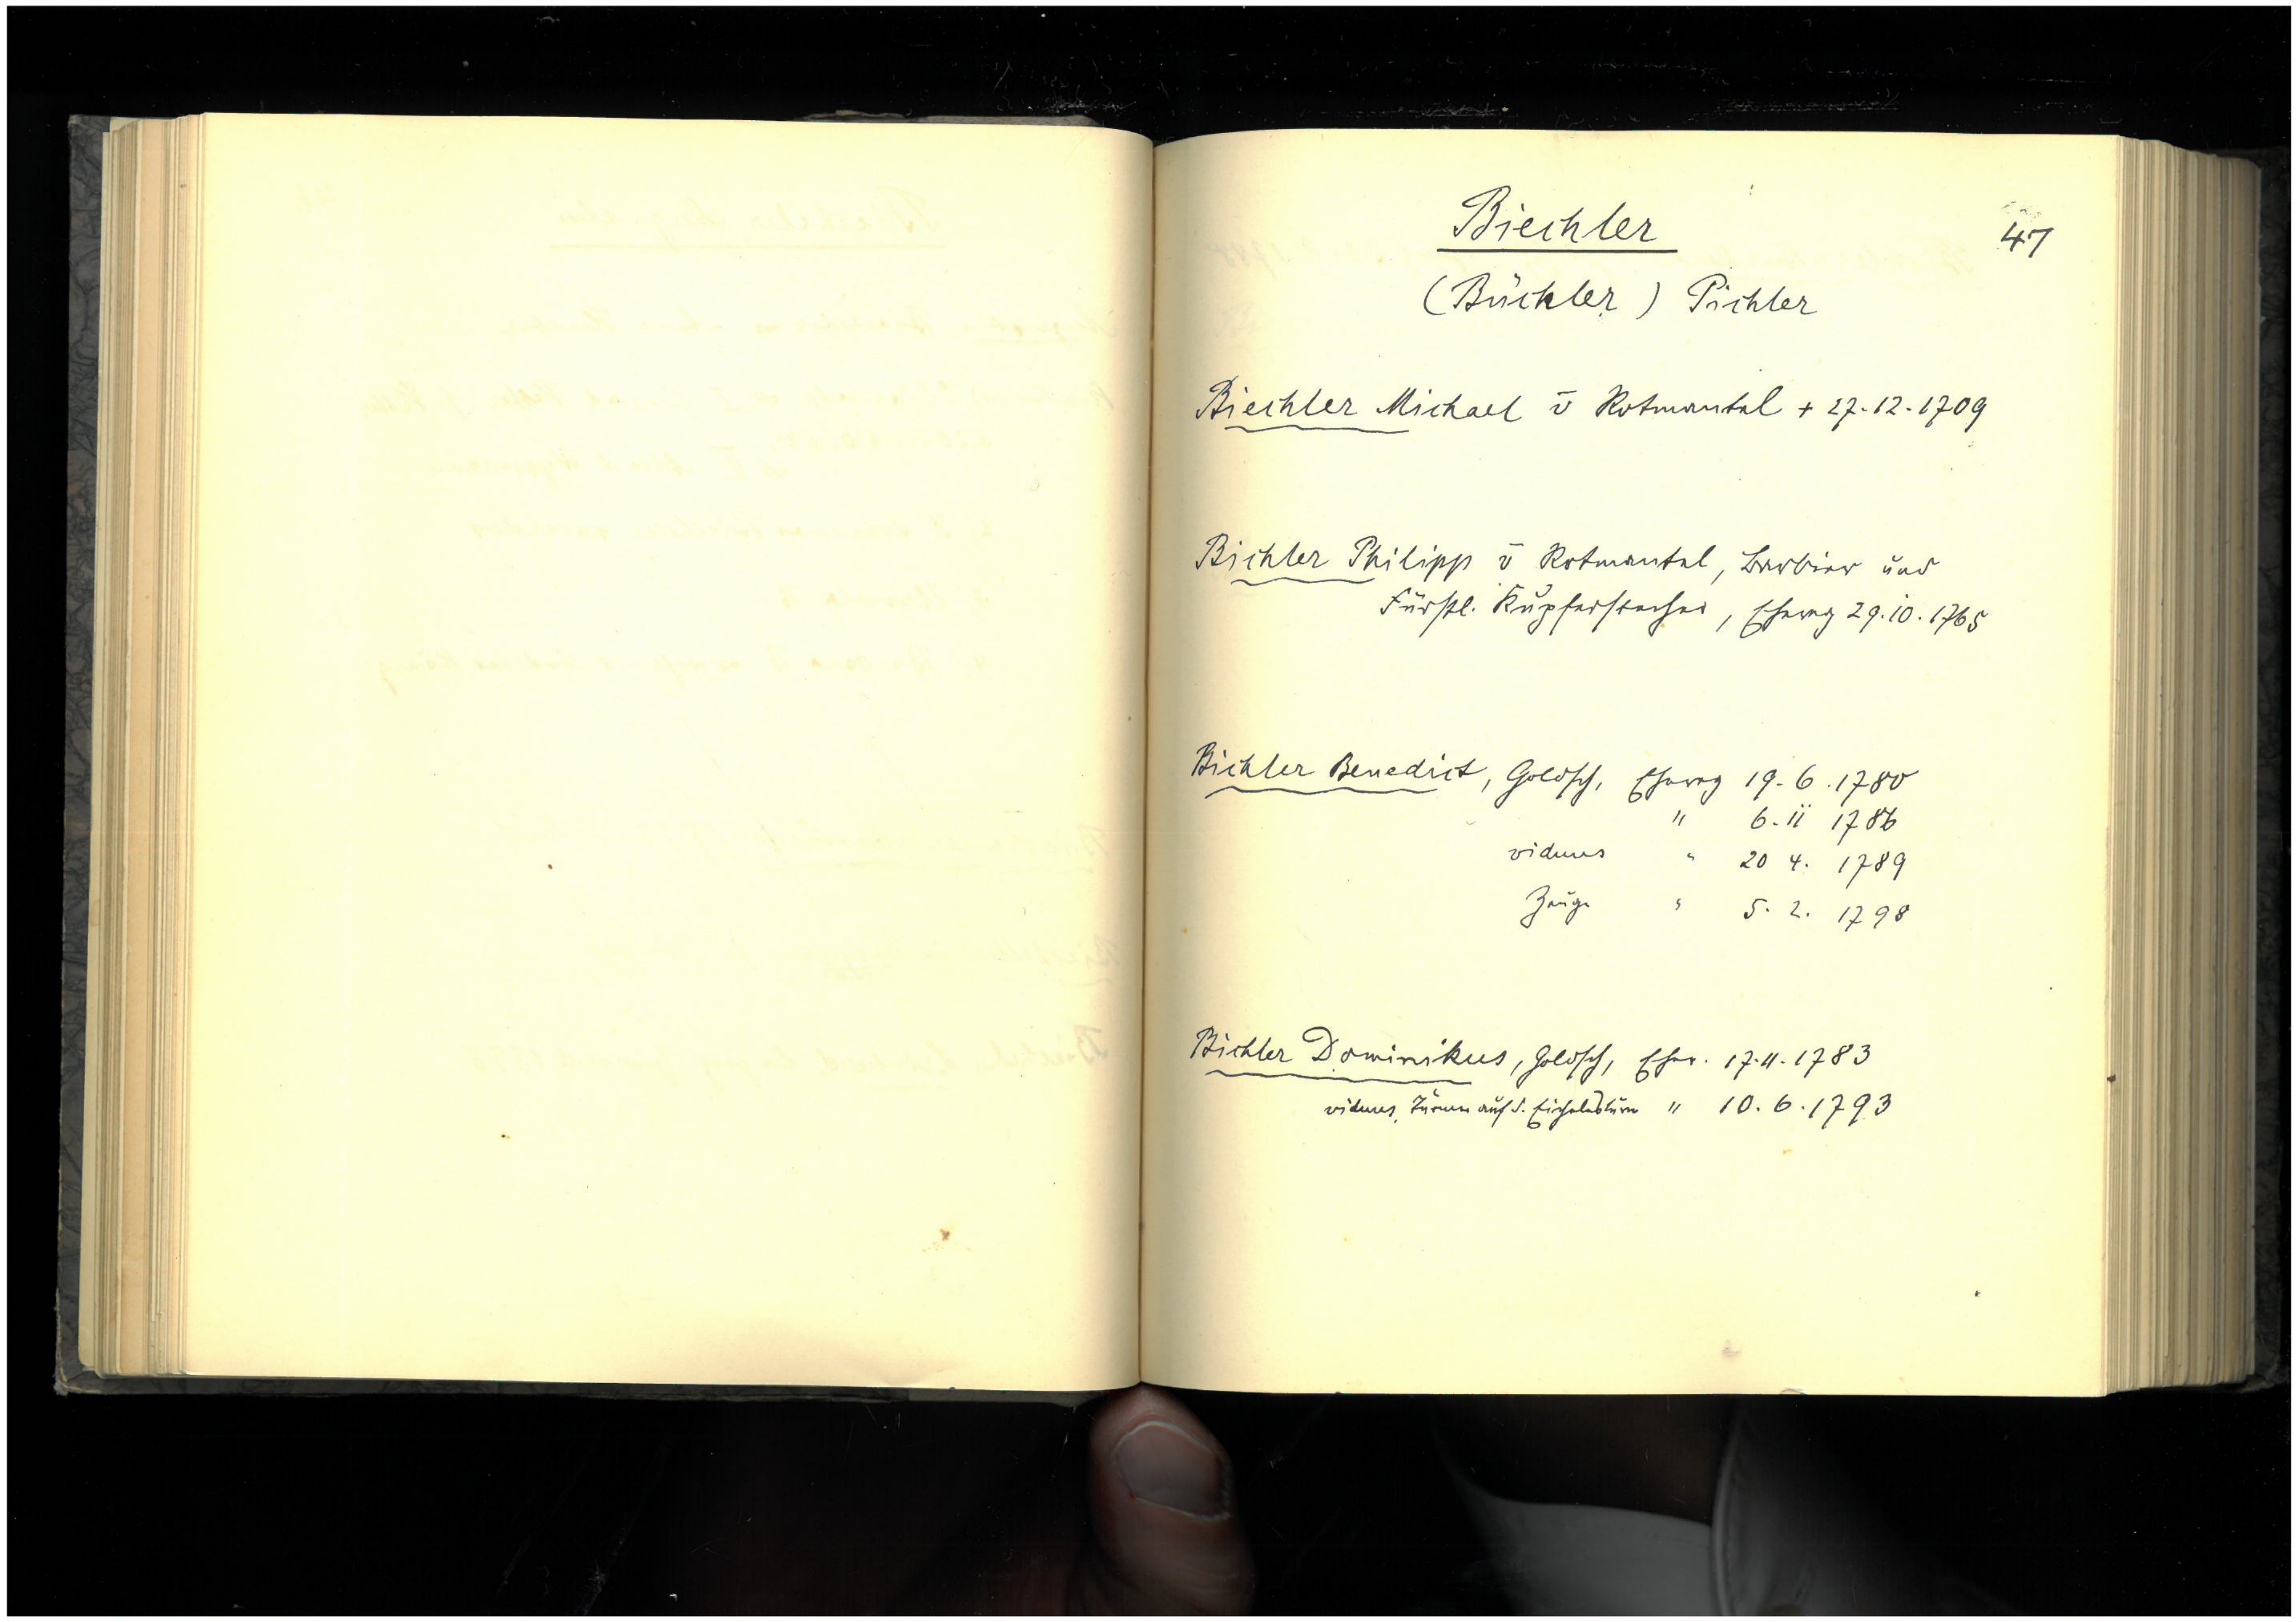 Biechler
47
(Büchler) Pichler
Biechler Michael v Rotmantal + 27.12.1709
Bichler Philipp v Rotmantal, Barbier und
Fürstl. Kupferstecher, Eheveg 29.10.1765
Bichler Benedict, Goldsch, Eheveg 19.6.1780
" 6.11 1786
viduus " 20 4. 1789
Zeuge " 5. 2. 1798
Bichler Dominikus, Goldsch, Ehev. 17.11.1783
viduus, auf d. " 10.6.1793